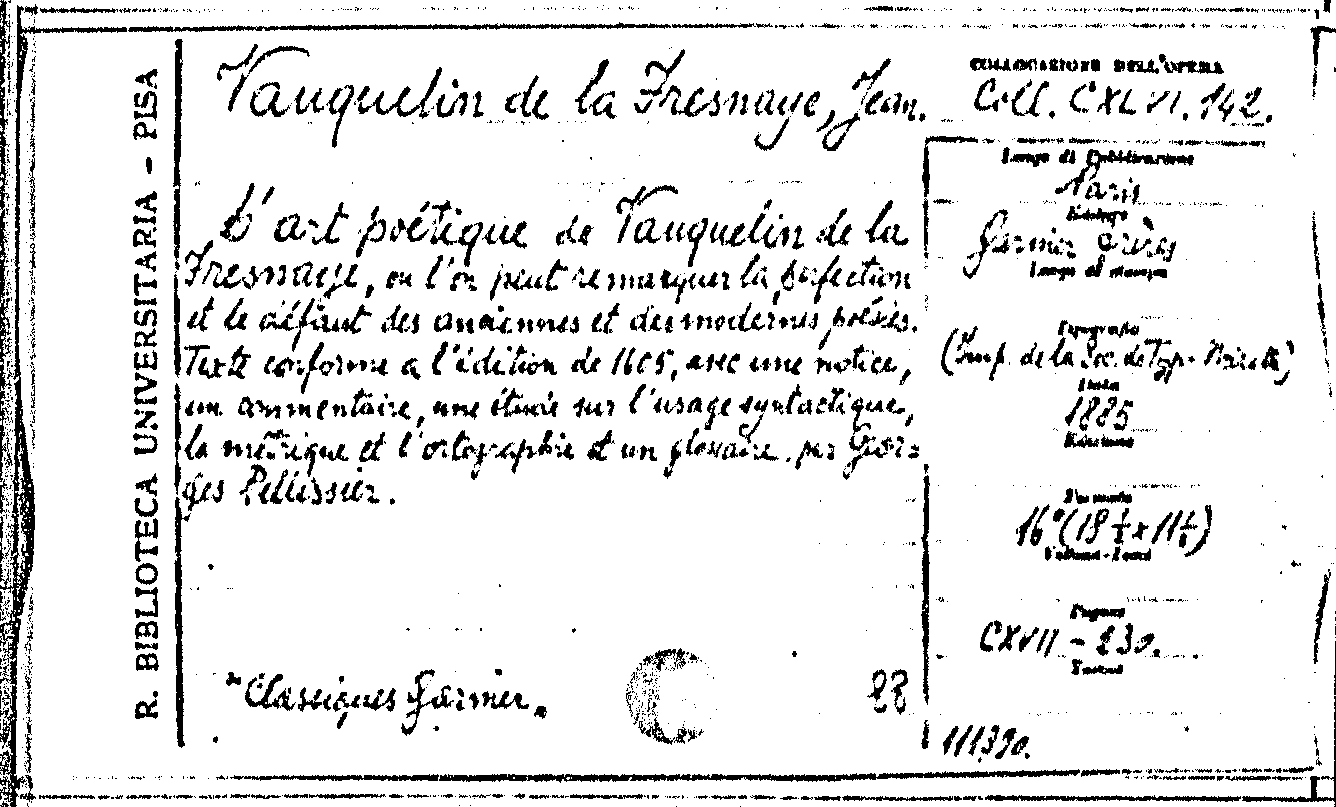 R. BIBLIOTECA UNIVERSITARIA - PISA
Vauquelin de la Fresnaye, Jean.
COLLOCAZIONE DELL'OPERA
Coll. CXLVI. 142.
L'art poétique de Vauquelin de la
Fresnaye, ou l'on peut remarquer la perfection
et le défaut des anciennes et des modernes poésies.
Texte conforme a l'édition de 1605, avec une notice,
un commentaire, une étude sur l'usage syntactique,
la métrique et l'ortographie et un glossaire. par Geor=
ges Pellissier.
"Classiques Garnier„
88
Luogo di Pubblicazione
Paris
Garnier frères
Luogo di stampa
Tipografo
(Imp. de la Soc. de Typ.
Data
1885
Edizione
Formato
16° (18
Volume - Tomi
Pagine
CXVII - 230.
111390.